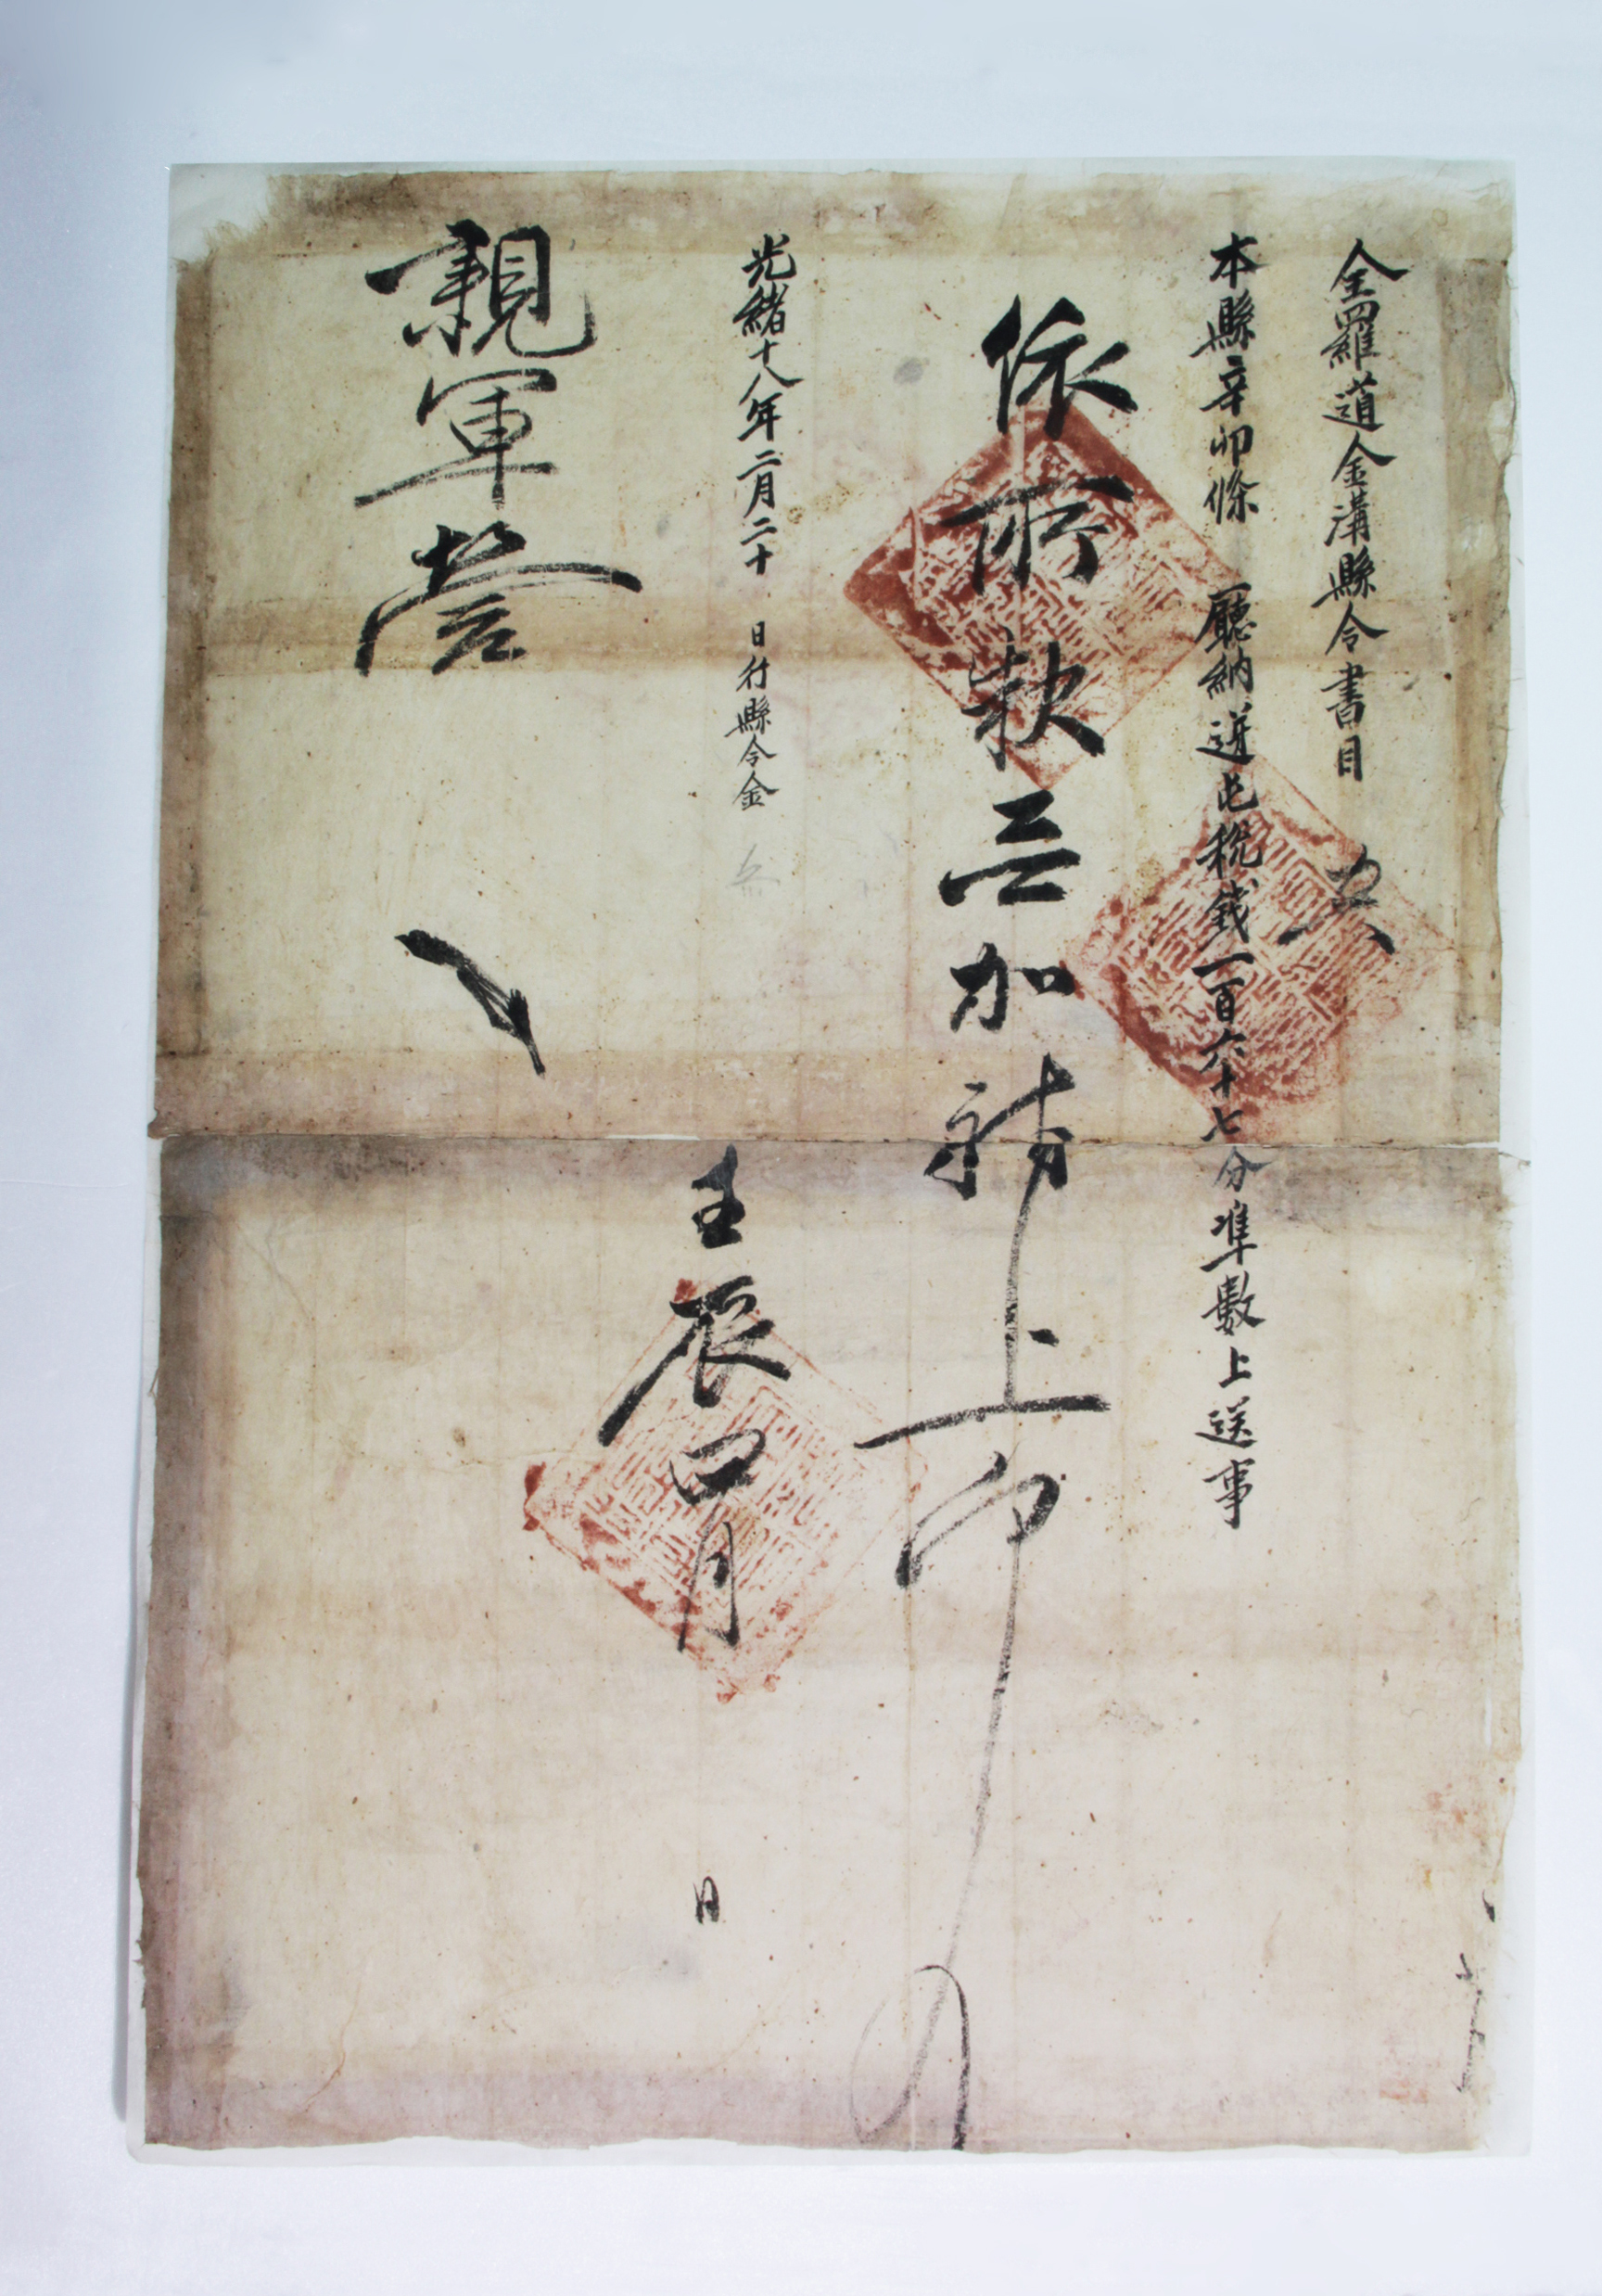 全羅道金溝縣令書目
本縣辛卯條 廳納迸屯稅錢一百六十七分準數上送事
依所
三加
上
光緖十八年二月二十 日行縣令金
壬辰四月 日
親軍營